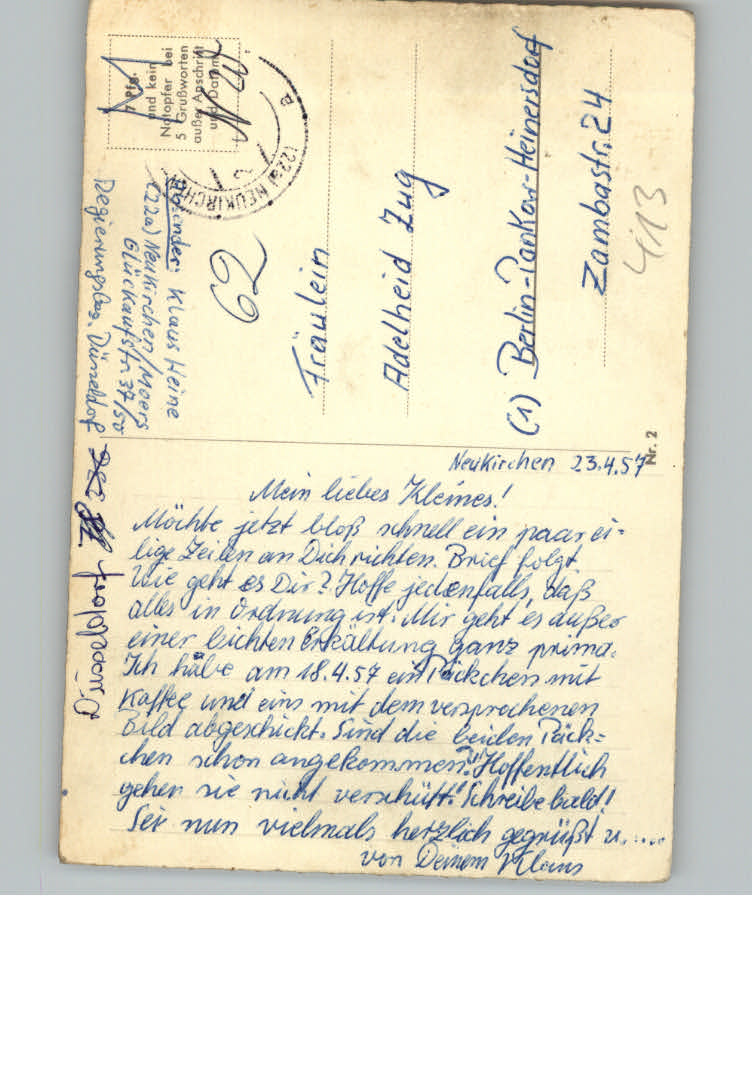 7 Pfg.
und kein
Notopfer bei
5 Grußworten
außer Anschrift
und Datum
(22a) NEUKIRCHEN
a
Absender: Klaus Heine
(22a) Neukirchen/Moers
Glückaufstr. 37/50
Regierungsbez. Düsseldorf
Düsseldorf
62
Fräulein
Adelheid Zug
(1) Berlin-Pankow-Heinersdorf
Zambastr. 24
413
Nr. 2
Neukirchen 23.4.57
Mein liebes Kleines!
Möchte jetzt bloß schnell ein paar ei=
lige Zeilen an Dich richten. Brief folgt.
Wie geht es Dir? Hoffe jedenfalls, daß
alles in Ordnung ist. Mir geht es außer
einer leichten Erkältung ganz prima.
Ich habe am 18.4.57 ein Päckchen mit
Kaffee und eins mit dem versprochenen
Bild abgeschickt. Sind die beiden Päck=
chen schon angekommen? Hoffentlich
gehen sie nicht verschütt! Schreibe bald!
Sei nun vielmals herzlich gegrüßt u. ....
von Deinem Klaus